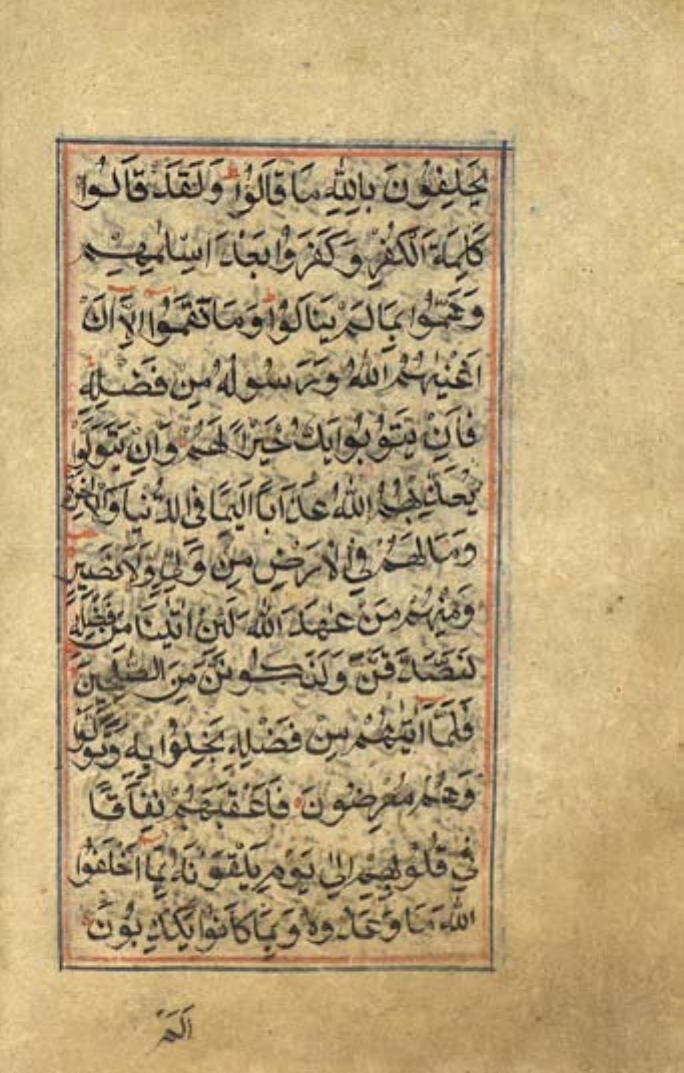 يَحْلِفُونَ بِاللّٰهِ مَا قَالُوْا وَلَقَدْ قَالُوا
كَلِمَةَ الْكُفْرِ وَكَفَرُوا بَعْدَ اِسْلَامِهِمْ
وَهَمُّوا بِمَا لَمْ يَنَالُوْا وَمَا نَقَمُوْا اِلَّا اَنْ
اَغْنٰيهُمُ اللّٰهُ وَرَسُولُهُ مِنْ فَضْلِهِ
فَاِنْ يَتُوبُوا يَكُ خَيْرًا لَهُمْ وَاِنْ يَتَوَلَّوْا
يُعَذِّبْهُمُ اللّٰهُ عَذَابًا اَلِيمًا فِى الدُّنْيَا وَالْاٰخِرَةِ
وَمَا لَهُمْ فِى الْاَرْضِ مِنْ وَلِىٍّ وَلَا نَصِيرٍ
وَمِنْهُمْ مَنْ عٰهَدَ اللّٰهَ لَئِنْ اٰتٰينَا مِنْ فَضْلِهِ
لَنَصَّدَّقَنَّ وَلَنَكُونَنَّ مِنَ الصّٰلِحِينَ
فَلَمَّا اٰتٰيهُمْ مِنْ فَضْلِهِ بَخِلُوْا بِهِ وَتَوَلَّوْا
وَهُمْ مُعْرِضُونَ فَاَعْقَبَهُمْ نِفَاقًا
فِى قُلُوبِهِمْ اِلٰى يَوْمِ يَلْقَوْنَهُ بِمَا اَخْلَفُوا
اللّٰهَ مَا وَعَدُوهُ وَبِمَا كَانُوا يَكْذِبُونَ
اَلَمْ